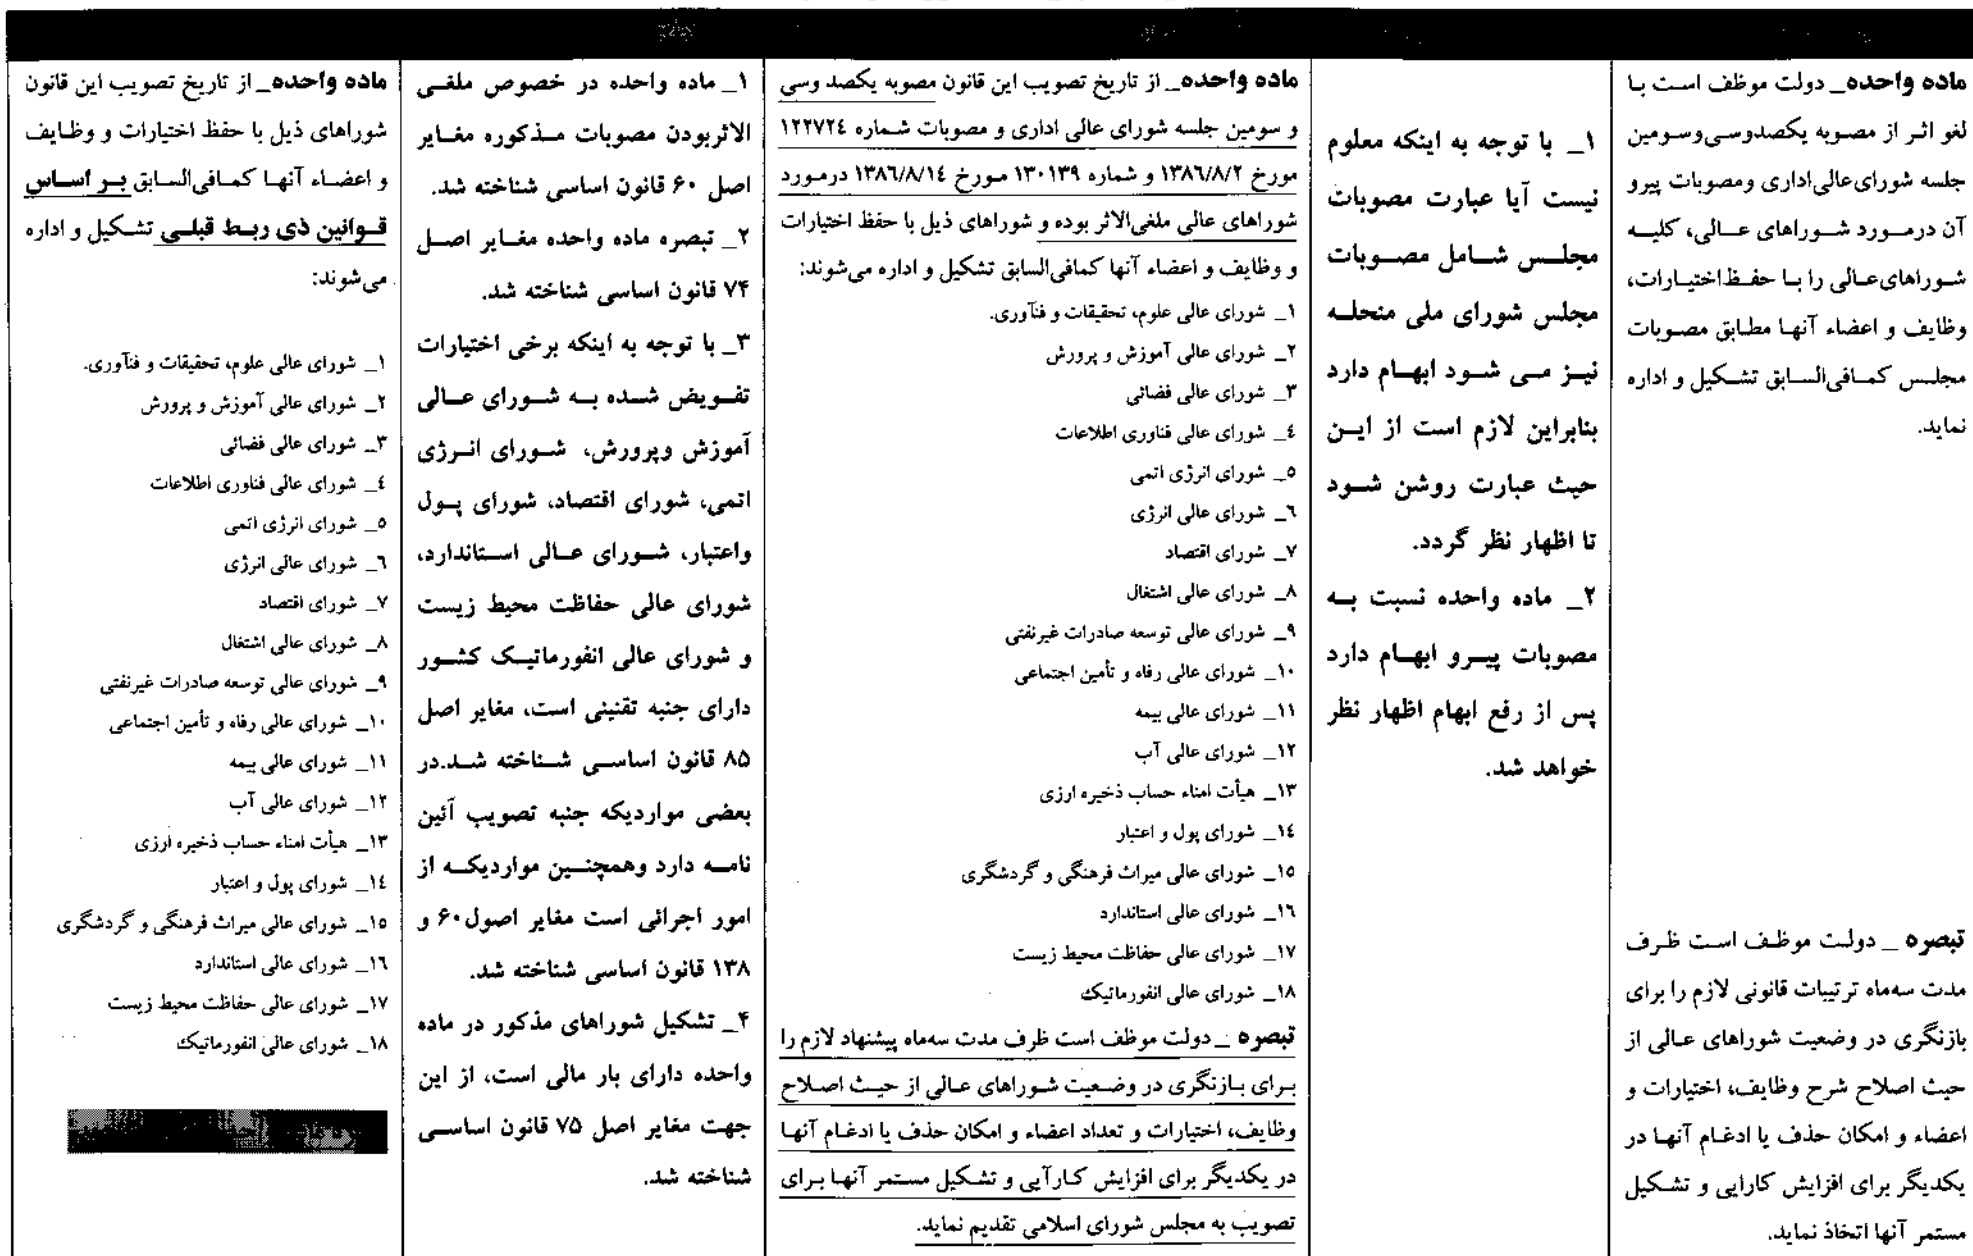 ماده واحده_ دولت موظف است با
لغو اثر از مصوبه یکصدوسی‌وسومین
جلسه شورای‌عالی‌اداری ومصوبات پیرو
آن درمورد شوراهای عالی، کلیه
شوراهای‌عالی را با حفظ‌اختیارات،
وظایف و اعضاء آنها مطابق مصوبات
مجلس کمافی‌السابق تشکیل و اداره
نماید.
تبصره _ دولت موظف است ظرف
مدت سه‌ماه ترتیبات قانونی لازم را برای
بازنگری در وضعیت شوراهای عالی از
حیث اصلاح شرح وظایف، اختیارات و
اعضاء و امکان حذف یا ادغام آنها در
یکدیگر برای افزایش کارایی و تشکیل
مستمر آنها اتخاذ نماید.
۱_ با توجه به اینکه معلوم
نیست آیا عبارت مصوبات
مجلس شامل مصوبات
مجلس شورای ملی منحله
نیز می شود ابهام دارد
بنابراین لازم است از این
حیث عبارت روشن شود
تا اظهار نظر گردد.
۲_ ماده واحده نسبت به
مصوبات پیرو ابهام دارد
پس از رفع ابهام اظهار نظر
خواهد شد.
ماده واحده_ از تاریخ تصویب این قانون مصوبه یکصد وسی
و سومین جلسه شورای عالی اداری و مصوبات شماره ۱۲۲۷۲٤
مورخ ۱۳۸٦/۸/۲ و شماره ۱۳۰۱۳۹ مورخ ۱۳۸٦/۸/۱٤ درمورد
شوراهای عالی ملغی‌الاثر بوده و شوراهای ذیل با حفظ اختیارات
و وظایف و اعضاء آنها کمافی‌السابق تشکیل و اداره می‌شوند:
۱_ شورای عالی علوم، تحقیقات و فنآوری.
۲_ شورای عالی آموزش و پرورش
۳_ شورای عالی فضائی
٤_ شورای عالی فناوری اطلاعات
۵_ شورای انرژی اتمی
٦_ شورای عالی انرژی
۷_ شورای اقتصاد
۸_ شورای عالی اشتغال
۹_ شورای عالی توسعه صادرات غیرنفتی
۱۰_ شورای عالی رفاه و تأمین اجتماعی
۱۱_ شورای عالی بیمه
۱۲_ شورای عالی آب
۱۳_ هیأت امناء حساب ذخیره ارزی
۱٤_ شورای پول و اعتبار
۱۵_ شورای عالی میراث فرهنگی و گردشگری
۱٦_ شورای عالی استاندارد
۱۷_ شورای عالی حفاظت محیط زیست
۱۸_ شورای عالی انفورماتیک
تبصره _ دولت موظف است ظرف مدت سه‌ماه پیشنهاد لازم را
برای بازنگری در وضعیت شوراهای عالی از حیث اصلاح
وظایف، اختیارات و تعداد اعضاء و امکان حذف یا ادغام آنها
در یکدیگر برای افزایش کارآیی و تشکیل مستمر آنها برای
تصویب به مجلس شورای اسلامی تقدیم نماید.
۱_ ماده واحده در خصوص ملغی
الاثربودن مصوبات مذکوره مغایر
اصل ۶۰ قانون اساسی شناخته شد.
۲_ تبصره ماده واحده مغایر اصل
۷۴ قانون اساسی شناخته شد.
۳_ با توجه به اینکه برخی اختیارات
تفویض شده به شورای عالی
آموزش وپرورش، شورای انرژی
اتمی، شورای اقتصاد، شورای پول
واعتبار، شورای عالی استاندارد،
شورای عالی حفاظت محیط زیست
و شورای عالی انفورماتیک کشور
دارای جنبه تقنینی است، مغایر اصل
۸۵ قانون اساسی شناخته شد.در
بعضی مواردیکه جنبه تصویب آئین
نامه دارد وهمچنین مواردیکه از
امور اجرائی است مغایر اصول۶۰ و
۱۳۸ قانون اساسی شناخته شد.
۴_ تشکیل شوراهای مذکور در ماده
واحده دارای بار مالی است، از این
جهت مغایر اصل ۷۵ قانون اساسی
شناخته شد.
ماده واحده_ از تاریخ تصویب این قانون
شوراهای ذیل با حفظ اختیارات و وظایف
و اعضاء آنها کمافی‌السابق بر اساس
قوانین ذی ربط قبلی تشکیل و اداره
می‌شوند:
۱_ شورای عالی علوم، تحقیقات و فنآوری.
۲_ شورای عالی آموزش و پرورش
۳_ شورای عالی فضائی
٤_ شورای عالی فناوری اطلاعات
۵_ شورای انرژی اتمی
٦_ شورای عالی انرژی
۷_ شورای اقتصاد
۸_ شورای عالی اشتغال
۹_ شورای عالی توسعه صادرات غیرنفتی
۱۰_ شورای عالی رفاه و تأمین اجتماعی
۱۱_ شورای عالی بیمه
۱۲_ شورای عالی آب
۱۳_ هیأت امناء حساب ذخیره ارزی
۱٤_ شورای پول و اعتبار
۱۵_ شورای عالی میراث فرهنگی و گردشگری
۱٦_ شورای عالی استاندارد
۱۷_ شورای عالی حفاظت محیط زیست
۱۸_ شورای عالی انفورماتیک